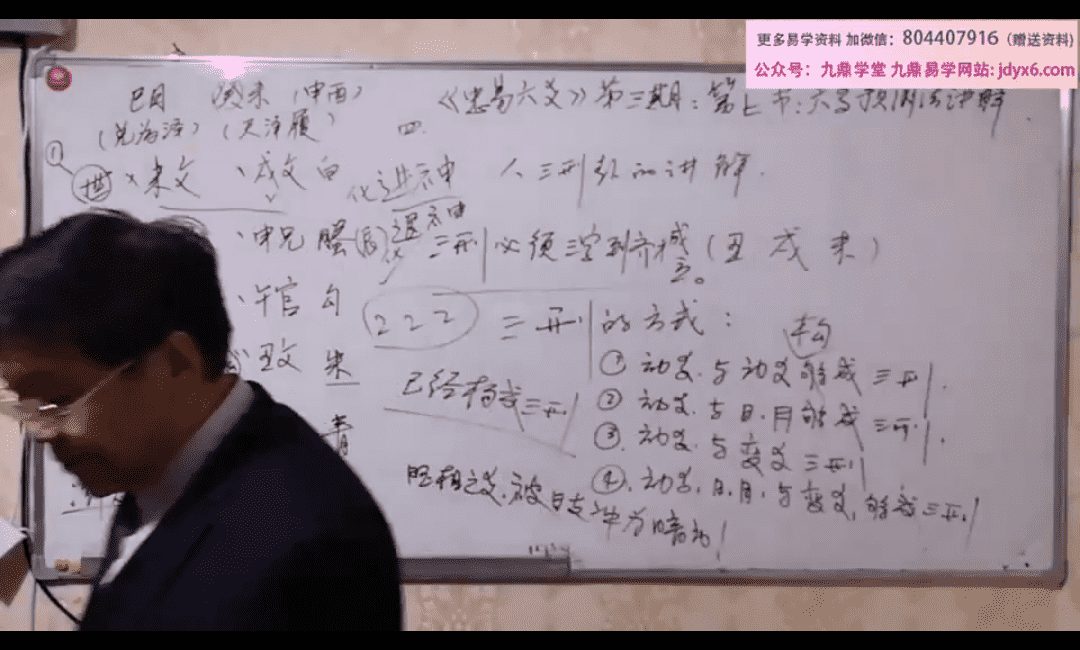 更多易学资料 加微信: 804407916 (赠送资料)
公众号: 九鼎学堂 九鼎易学网站: jdyx6.com
巳月 癸未 (申酉)
《忠易六爻》第三期: 第七节: 六爻预测法讲解
(兑为泽) (天泽履)
四.
① 世 × 未父 、戌父 白 化进神
人 三刑引的讲解.
、申兄 螣 (辰) 退神
三刑必须三字到齐 成立。(丑 戌 未)
、午官 勾
222
三刑的方式:
构
丑父 朱
① 动爻与动爻能成三刑.
已经构成三刑
② 动爻与日.月能成三刑.
青
③ 动爻与变爻三刑
④. 动爻.日.月.与变爻.能成三刑.
旺相之爻.被日支冲为暗动!